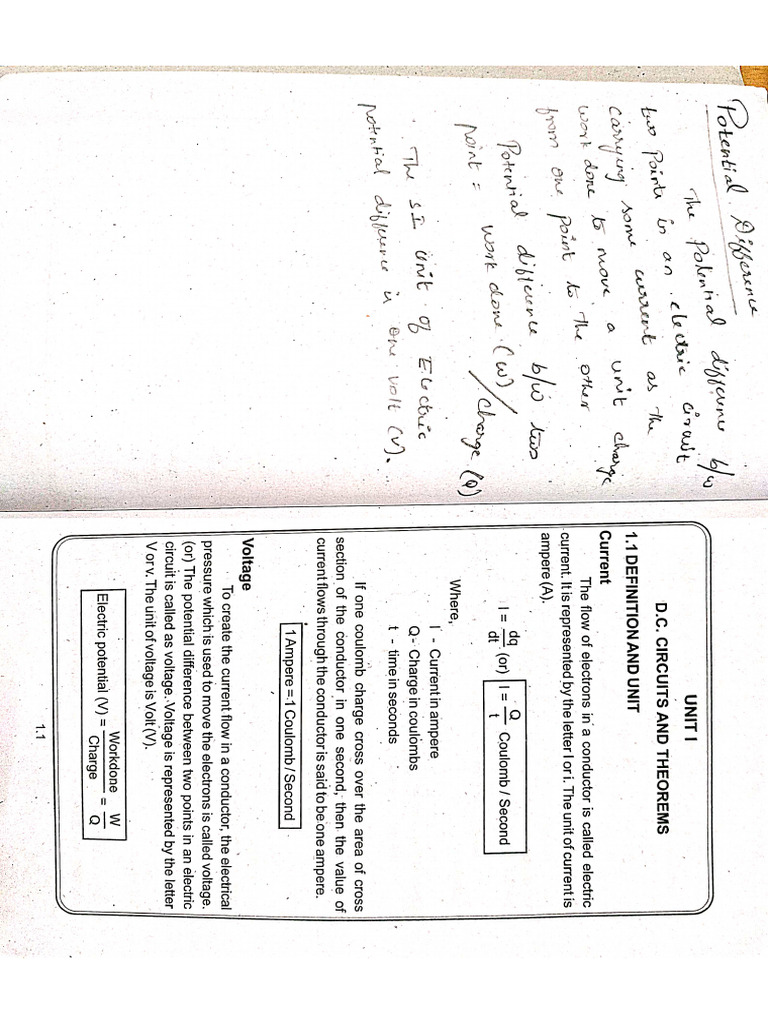 Potential Difference
The Potential difference b/w
two Points in an electric circuit
carrying some current as the
work done to move a unit charge
from one point to the other.
Potential difference b/w two
point = work done (W) / charge (Q)
. The SI Unit of Electric
potential difference is one volt (V).
UNIT I
D.C. CIRCUITS AND THEOREMS
1.1 DEFINITION AND UNIT
Current
The flow of electrons in a conductor is called electric
current. It is represented by the letter I or i. The unit of current is
ampere (A).
I = dq/dt (or) I = Q/t Coulomb / Second
Where,
I - Current in ampere
Q - Charge in coulombs
t - time in seconds
If one coulomb charge cross over the area of cross
section of the conductor in one second, then the value of
current flows through the conductor is said to be one ampere.
1 Ampere = 1 Coulomb / Second
Voltage
To create the current flow in a conductor, the electrical
pressure which is used to move the electrons is called voltage.
(or) The potential difference between two points in an electric
circuit is called as voltage. Voltage is represented by the letter
V or v. The unit of voltage is Volt (V).
Electric potential (V) = Workdone/Charge = W/Q
1.1